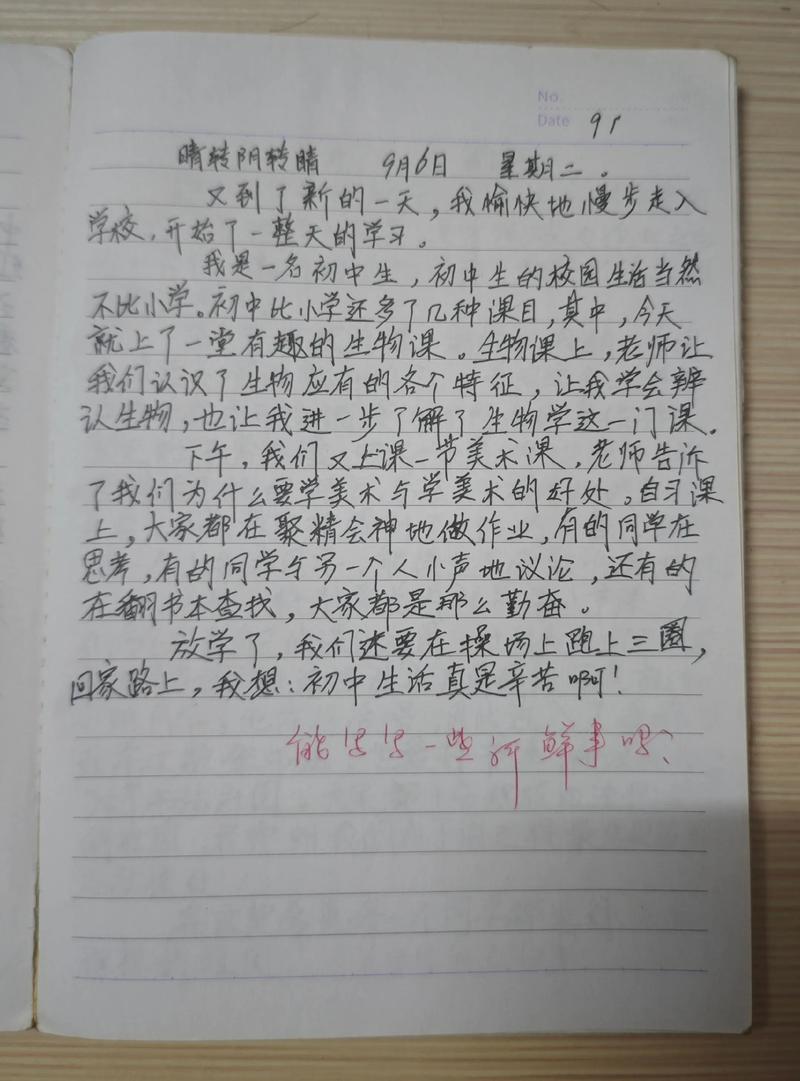 No.
Date 91
晴转阴转晴 9月6日 星期二。
又到了新的一天，我愉快地慢步走入
学校，开始了一整天的学习。
我是一名初中生，初中生的校园生活当然
不比小学。初中比小学还多了几种课目，其中，今天
就上了一堂有趣的生物课。生物课上，老师让
我们认识了生物应有的各个特征，让我学会辨
认生物，也让我进一步了解了生物学这一门课。
下午，我们又上课一节美术课，老师告诉
了我们为什么要学美术与学美术的好处。自习课
上，大家都在聚精会神地做作业，有的同学在
思考，有的同学与另一个人小声地议论，还有的
在翻书本查找，大家都是那么勤奋。
放学了，我们还要在操场上跑上三圈，
回家路上，我想：初中生活真是辛苦啊！
能写写一些新鲜事吗？